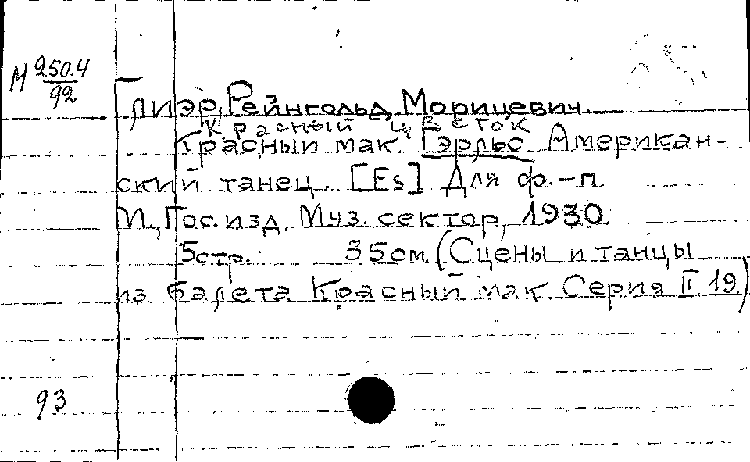 М 250.4
92
Глиэр, Рейнгольд Морицевич.
Красный цветок
Красный мак. Гэрльс Американ-
ский танец. [Es] Для ф.-п.
М., Гос. изд. Муз. сектор, 1930.
5 стр. 35 см. (Сцены и танцы
из балета Красный мак. Серия II. 19)
93